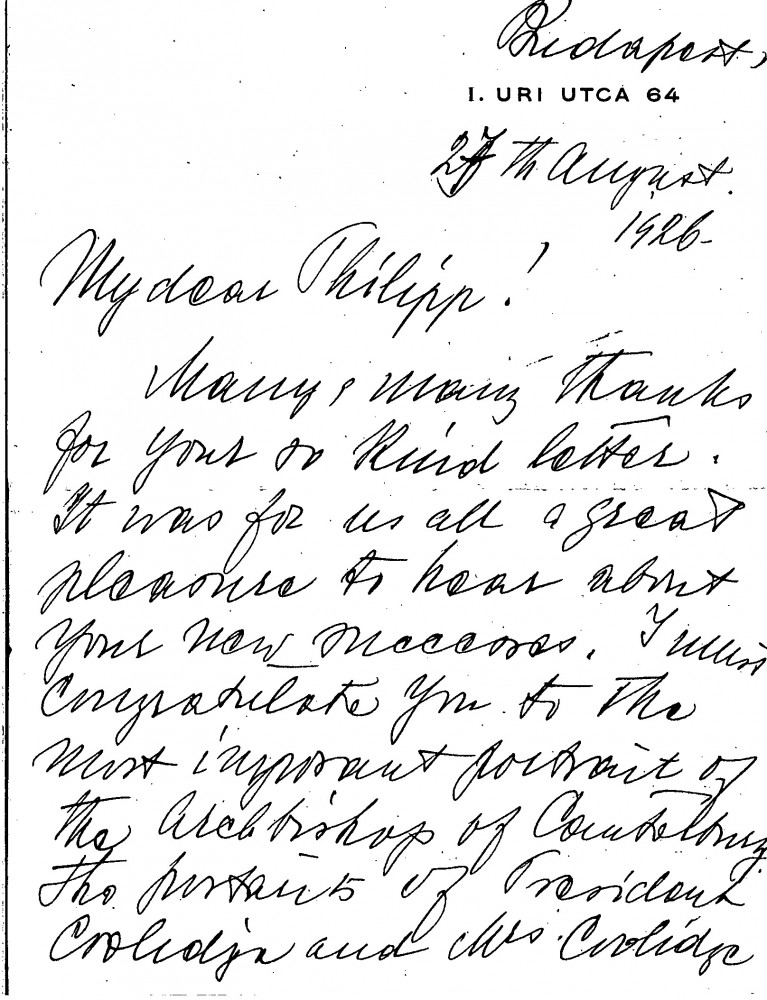 Budapest,
I. URI UTCA 64
27th August.
1926-
My dear Philipp!
Many, many thanks
for your so kind letter.
It was for us all a great
pleasure to hear about
your new successes. I must
Congratulate You to the
most imporant portrait of
the Archbishop of Canterbury
the portraits of President
Coolidge and Mrs. Coolidge